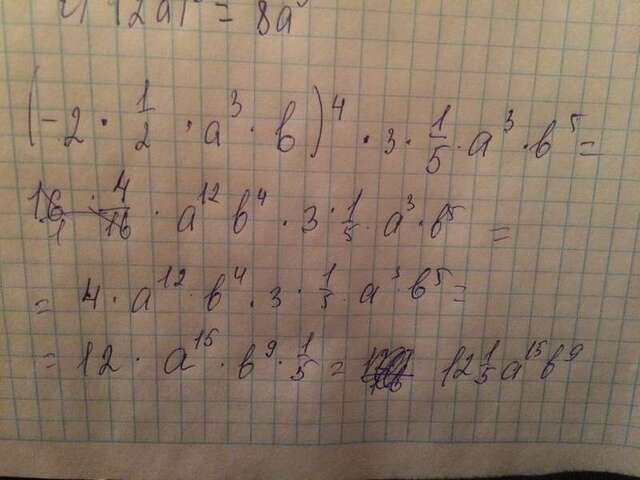 (2a) = 8a
(-2 · 1/2 · a³ · b)⁴ · 3 · 1/5 · a³ · b⁵ =
16/1 · 4/16 · a¹² b⁴ · 3 · 1/5 · a³ · b⁵ =
= 4 · a¹² · b⁴ · 3 · 1/5 · a³ b⁵ =
= 12 · a¹⁵ · b⁹ · 1/5 = 12 1/5 a¹⁵ b⁹